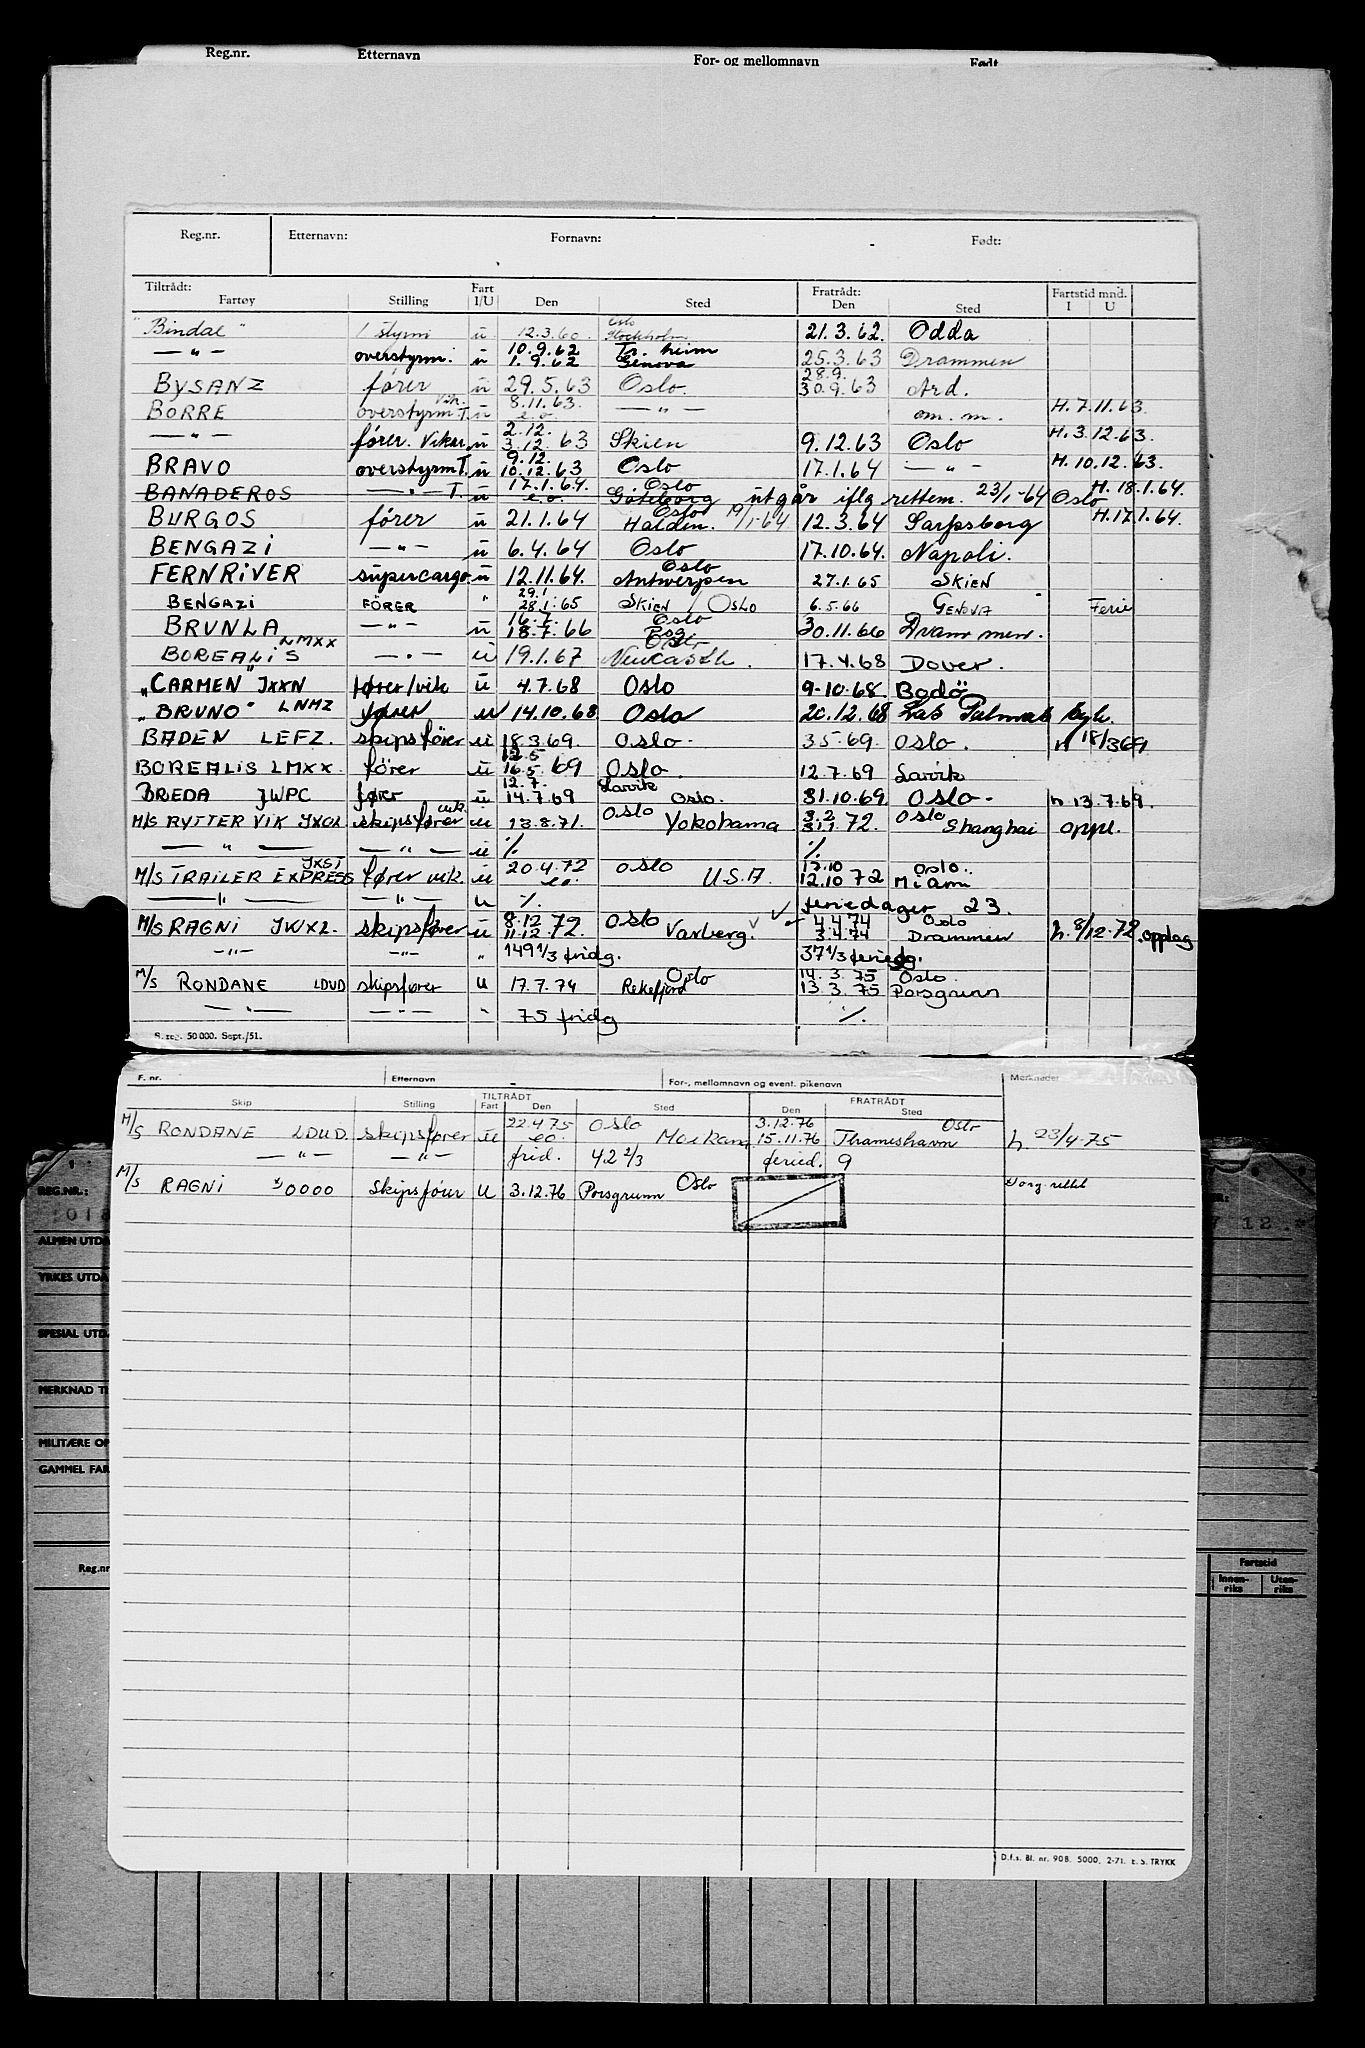 Reg.nr. Etternavn For- og mellomnavn Født
Reg.nr. Etternavn: Fornavn: Født:
Tiltrådt: Fart Fratrådt: Fartstid mnd.
Fartøy Stilling I/U Den Sted Den Sted I U
"Bindal" 1 styrm u 12.3.60 Oslo Stockholm 21.3.62. Odda
— " — overstyrm. ü 10.9.62 1.9.62 Tr.heim Genova 25.3.63 Drammen
BYSANZ fører ü 29.5.63 Oslo. 28.9. 30.9.63 Ard.
BORRE overstyrm T. Vik. ü 8.11.63. e.o. — " — om. m. H.7.11.63.
— " — fører. Vikar. ü 2.12. 3.12.63 Skien 9.12.63 Oslo H.3.12.63.
BRAVO overstyrm T. ü 9.12. 10.12.63 Oslo 17.1.64 — " — H.10.12.63.
BANADEROS — " — T. ü 17.1.64. e.o. Oslo Göteborg utgår iflg. rettem. 23/1-64 Oslo H.18.1.64.
BURGOS fører ü 21.1.64 Oslo Halden. 19/1-64 12.3.64 Sarpsborg H.17.1.64.
BENGAZI — " — ü 6.4.64 Oslo 17.10.64. Napoli.
FERNRIVER supercargo ü 12.11.64. Oslo Antwerpen 27.1.65 SKIEN
BENGAZI FÖRER " 29.1 28.1.65 SKIEN / OSLO 6.5.66 GENOVA Ferie
BRUNLA — " — ü 16.7. 18.7.66 Oslo Psg 30.11.66 Drammen.
BOREALIS LMXX — " — ü 19.1.67 Oslo Newcastle. 17.4.68 Dover.
"CARMEN" JXXN fører/vik ü 4.7.68 Oslo 9-10.68. Bodö
"BRUNO" LNMZ fører u 14.10.68 Oslo 20.12.68 Las Palmas syk.
BADEN LEFZ. skipsförer ü 18.3.69. Oslo. 3.5.69. Oslo. h 18/3 69
BOREALIS LMXX. förer ü 12.5 16.5.69 Oslo. 12.7.69 Larvik
BREDA JWPC fører ü 12.7. 14.7.69 Larvik Oslo. 31.10.69. Oslo. h 13.7.69.
M/S RYTTERVIK JXOR skipsfører vik. ü 13.8.71. Oslo Yokohama 3.2 31.1.72. Oslo Shanghai oppl.
— " — — " — ü ٪ ٪
M/S TRAILER EXPRESS JXST fører vik. ü 20.4.72 eo. Oslo U.S.A. 13.10 12.10 72 Oslo. Miami
— " — — " — u ٪ feriedager 23.
M/S RAGNI JWXL. skipsfører ü 8.12 11.12.72. Oslo Varberg. 4.4.74 3.4.74 Oslo Drammen h. 8/12-72. opplag
— " — — " — " 149 1/3 fridg. 37 1/3 feriedg.
M/S RONDANE LDUD skipsfører u 17.7.74 Oslo Rekefjord 14.3.75 13.3.75 Oslo Porsgrunn
— " — — " — " 75 fridg ٪
S. reg. 50 000. Sept./51.
F. nr. Etternavn For-, mellomnavn og event. pikenavn Merknader
TILTRÅDT FRATRÅDT
Skip Stilling Fart Den Sted Den Sted
M/S RONDANE LDUD. skipsfører ü 22.4.75 eo. Oslo 3.12.76 15.11.76 Oslo Thameshavn h. 23/4-75
— " — — " — frid. 42 2/3 feried. 9
M/S RAGNI x) 0000 Skipsfører U 3.12.76 Porsgrunn Oslo
REG.NR.:
ALMEN UTDA
YRKES UTDA
SPESIAL UTD
MERKNAD T
MILITÆRE OP
GAMMEL FAR
Reg.nr
Fartstid
Innen-riks Uten-riks
D.f.s. Bl. nr. 90B. 5000. 2-71. E. S. TRYKK